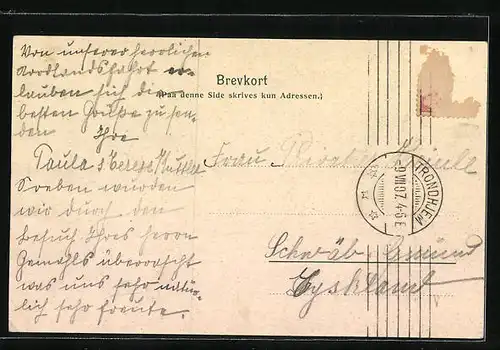 Brevkort
(Paa denne Side skrives kun Adressen.)
Von unserer herrlichen
Nordlandsfahrt er-
lauben sich die
besten Grüße zu sen-
den Ihre
Paula &
Soeben wurden
wir durch den
Besuch Ihres Herrn
Gemahls überrascht
was uns sehr natür-
lich sehr freute.
Frau
Schwäb. Gmünd
Tyskland
TRONDHJEM
9 VIII 07. 4-5 E